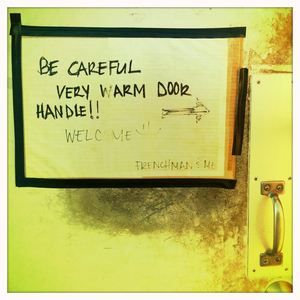 BE CAREFUL
VERY WARM DOOR
HANDLE!!
WELCOME!!
FRENCHMAN & ME